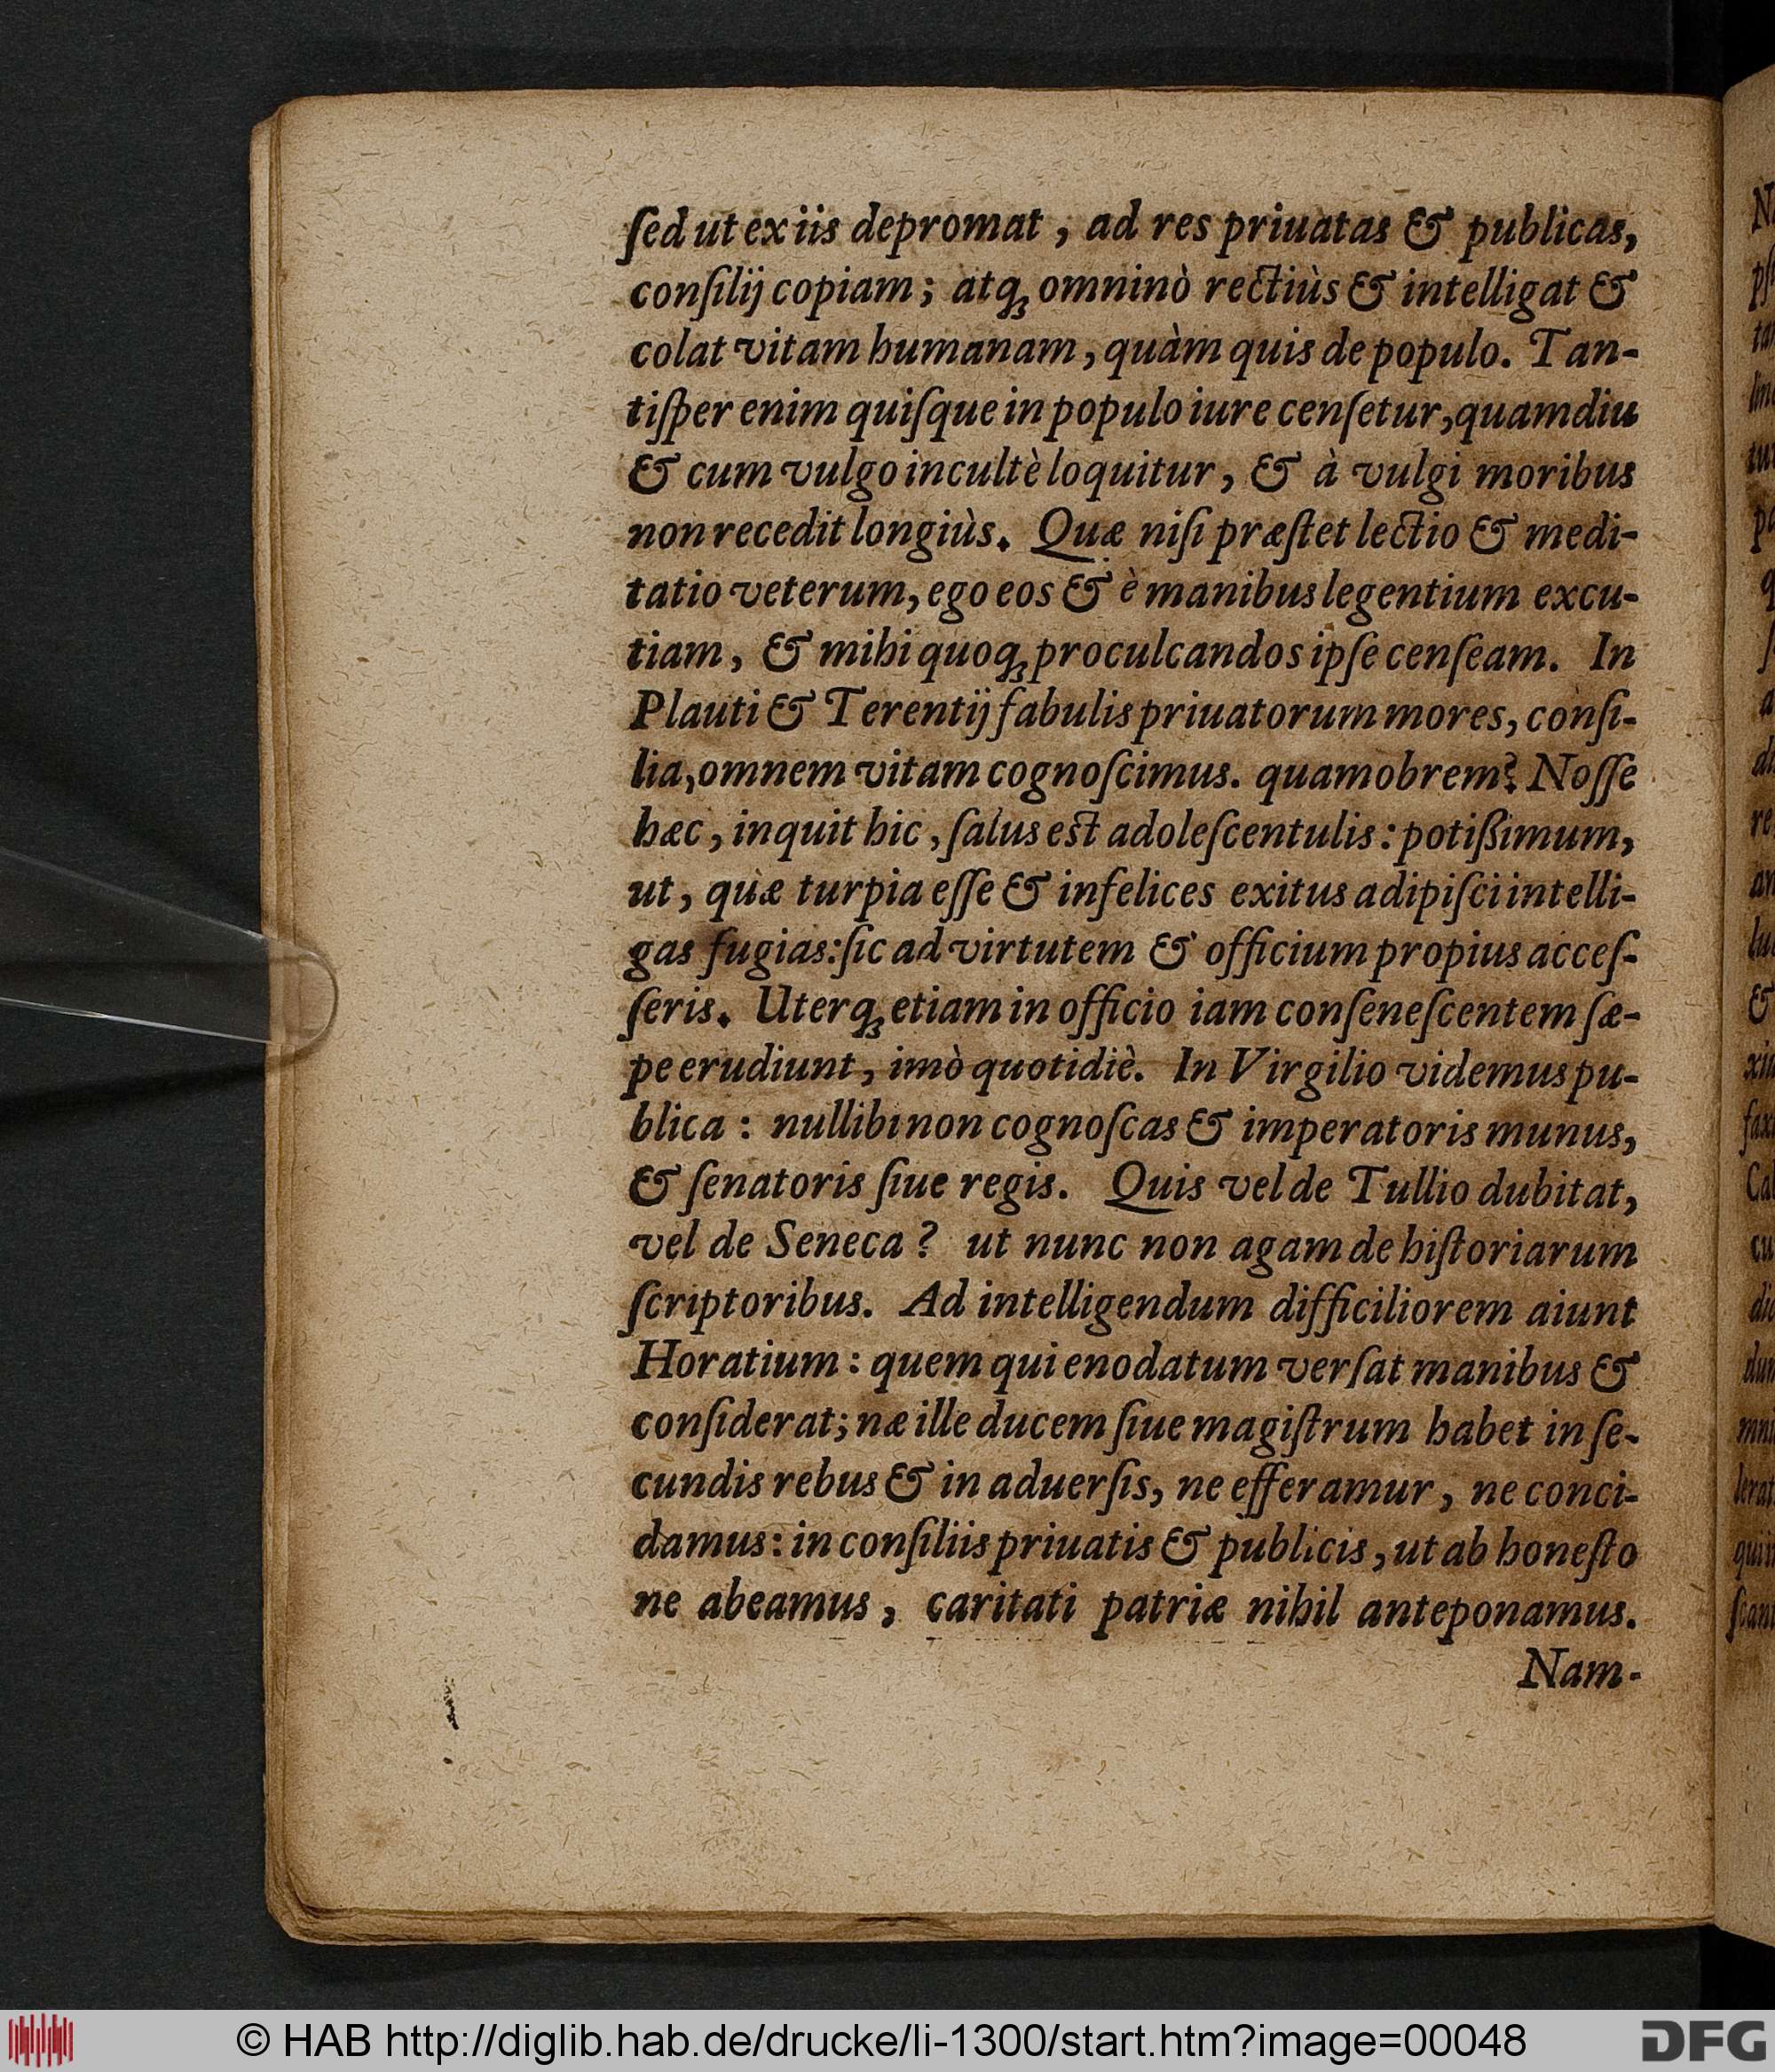 ſed ut ex iis depromat, ad res priuatas & publicas,
conſilij copiam; atqꝫ omninò rectiùs & intelligat &
colat vitam humanam, quàm quis de populo. Tan-
tiſper enim quiſque in populo iure cenſetur, quamdiu
& cum vulgo incultè loquitur, & à vulgi moribus
non recedit longiùs. Quæ niſi præſtet lectio & medi-
tatio veterum, ego eos & è manibus legentium excu-
tiam, & mihi quoqꝫ proculcandos ipſe cenſeam. In
Plauti & Terentij fabulis priuatorum mores, conſi-
lia, omnem vitam cognoſcimus. quamobrem? Noſſe
hæc, inquit hic, ſalus est adoleſcentulis: potiſſimum,
ut, quæ turpia eſſe & infelices exitus adipiſci intelli-
gas fugias: ſic ad virtutem & officium propius acceſ-
ſeris. Uterqꝫ etiam in officio iam conſeneſcentem ſæ-
pe erudiunt, imò quotidiè. In Virgilio videmus pu-
blica: nullibi non cognoſcas & imperatoris munus,
& ſenatoris ſiue regis. Quis vel de Tullio dubitat,
vel de Seneca? ut nunc non agam de hiſtoriarum
ſcriptoribus. Ad intelligendum difficiliorem aiunt
Horatium: quem qui enodatum verſat manibus &
conſiderat; næ ille ducem ſiue magiſtrum habet in ſe-
cundis rebus & in aduerſis, ne efferamur, ne conci-
damus: in conſiliis priuatis & publicis, ut ab honeſto
ne abeamus, caritati patriæ nihil anteponamus.
Nam-
© HAB http://diglib.hab.de/drucke/li-1300/start.htm?image=00048
DFG